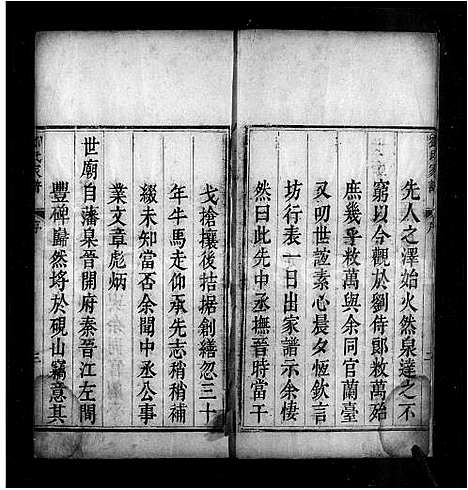 先人之澤始火然泉達之不
窮以今觀於劉侍郎敉萬殆
庶幾乎敉萬與余同官蘭臺
又叨世誼素心晨夕恆欽言
坊行表一日出家譜示余悽
然曰此先中丞撫晉時當干
戈搶攘後拮据創繕忽三十
年牛馬走仰承先志稍稍補
綴未知當否余聞中丞公事
業文章彪炳
世廟自藩臬晉開府秦晉江左間
豐碑巋然埒於硯山竊意其